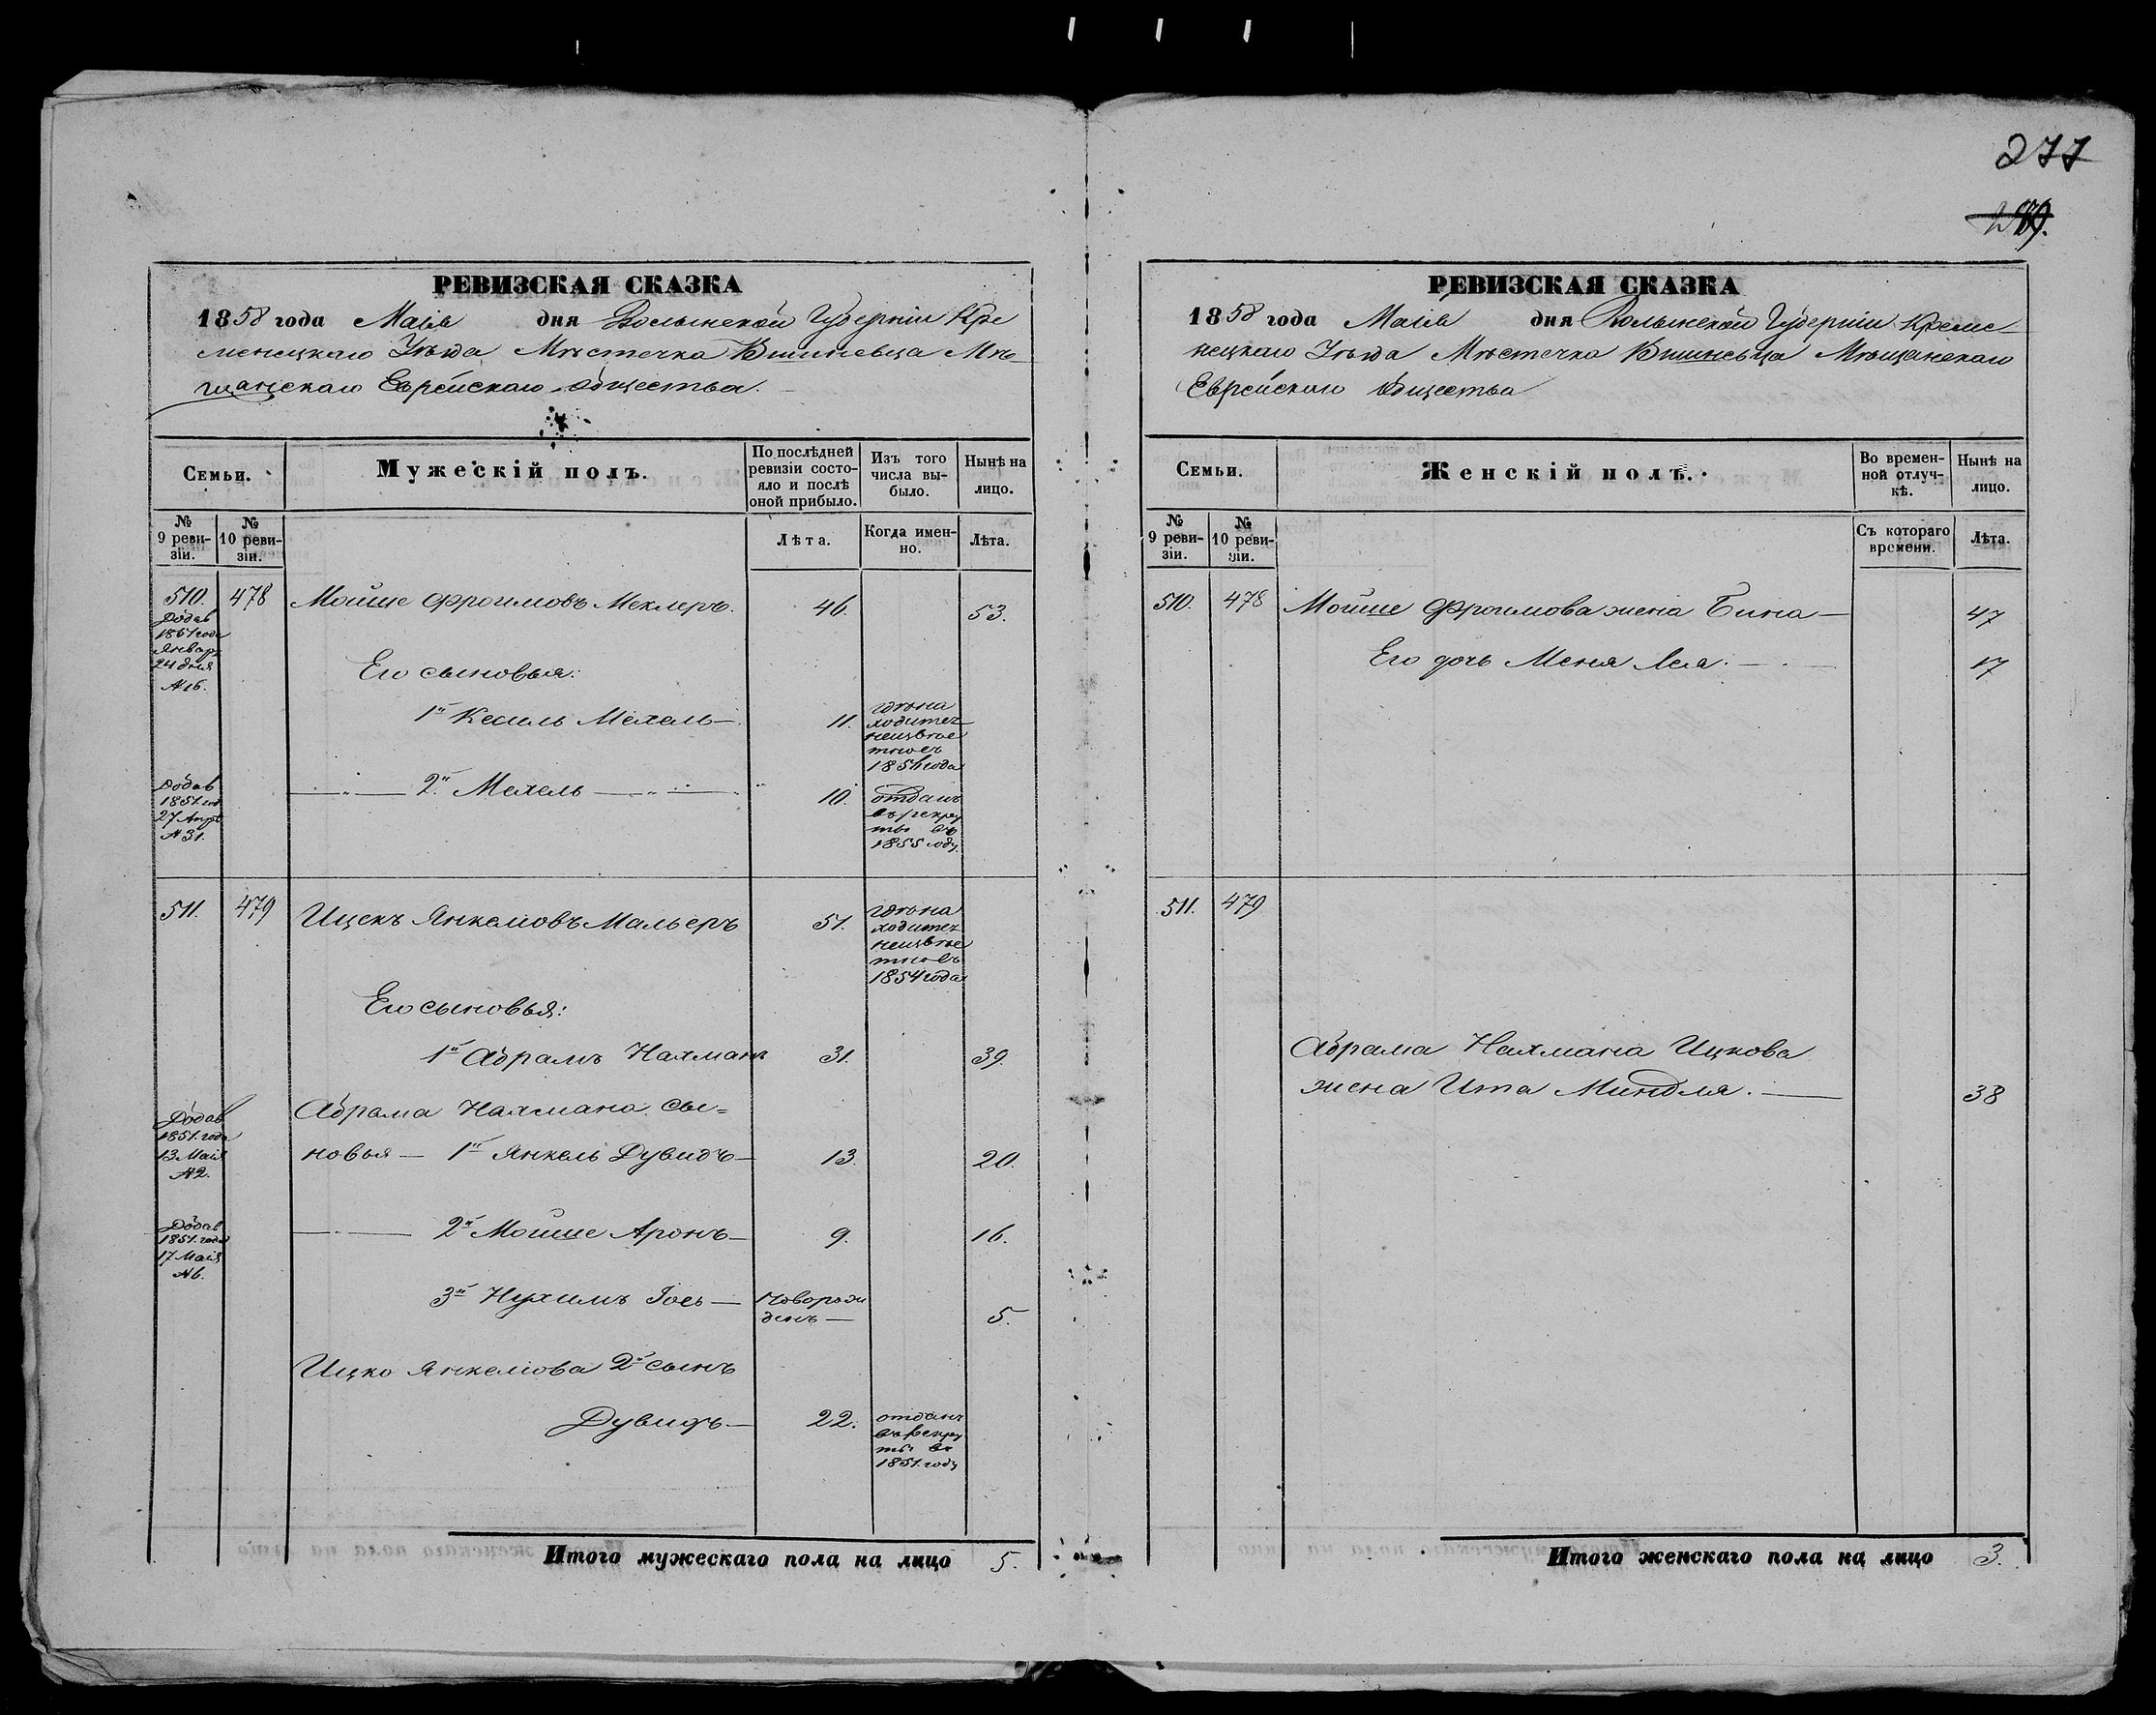 277
РЕВИЗСКАЯ СКАЗКА
1858 года Маія дня Волынской Губерніи Кре
менецкаго Уѣзда Мѣстечка Вишневца Мѣ-
щанскаго Еврейскаго общества.
Семьи.
Мужескій полъ.
По послѣдней
ревизіи состо-
яло и послѣ
оной прибыло.
Изъ того
числа вы-
было.
Нынѣ на
лицо.
№
9 реви-
зіи.
№
10 реви-
зіи.
Лѣта.
Когда имен-
но.
Лѣта.
510. 478 Мойше Фроимовъ Меклеръ. 46. 53.
Додав
1851 года
Январ
24 дня
№16.
Его сыновья:
1й Кесиль Мехель— 11.
гдѣ на
ходитъ
неизвѣс
тно съ
1856 года
Додав
1851. год
27 Апр
№31.
2й Мехель 10.
отданъ
въ рекру
ты въ
1855 году.
511. 479 Ицекъ Янкеліовъ Мальеръ 51.
гдѣ на
ходитъ
неизвѣс
тно съ
1854 года
Его сыновья:
1й Абрамъ Нахманъ 31. 39.
Абрама Нахмана сы=
новья — 1й Янкель Дувидъ— 13. 20.
Додав
1851. года
13 Маія
№2.
2й Мойше Аронъ— 9. 16.
Додав
1851. года
17 Маія
№6.
3й Нухимъ Іось — Новорож
денъ — 5.
Ицко Янкеліова 2й сынъ
Дувидъ.— 22.
отданъ
въ рекру
ты въ
1851. году
Итого мужескаго пола на лицо 5.
РЕВИЗСКАЯ СКАЗКА
1858 года Маія дня Волынской Губерніи Креме
нецкаго Уѣзда Мѣстечка Вишневца Мѣщанскаго
Еврейскаго общества
Семьи.
Женскій полъ.
Во времен-
ной отлуч-
кѣ.
Нынѣ на
лицо.
№
9 реви-
зіи.
№
10 реви-
зіи.
Съ котораго
времени.
Лѣта.
510. 478 Мойше Фроимова жена Бина— 47
Его дочь Меня Леа. — 17
511. 479
Абрама Нахмана Ицкова
жена Ита Миндля. — 38
Итого женскаго пола на лицо 3.